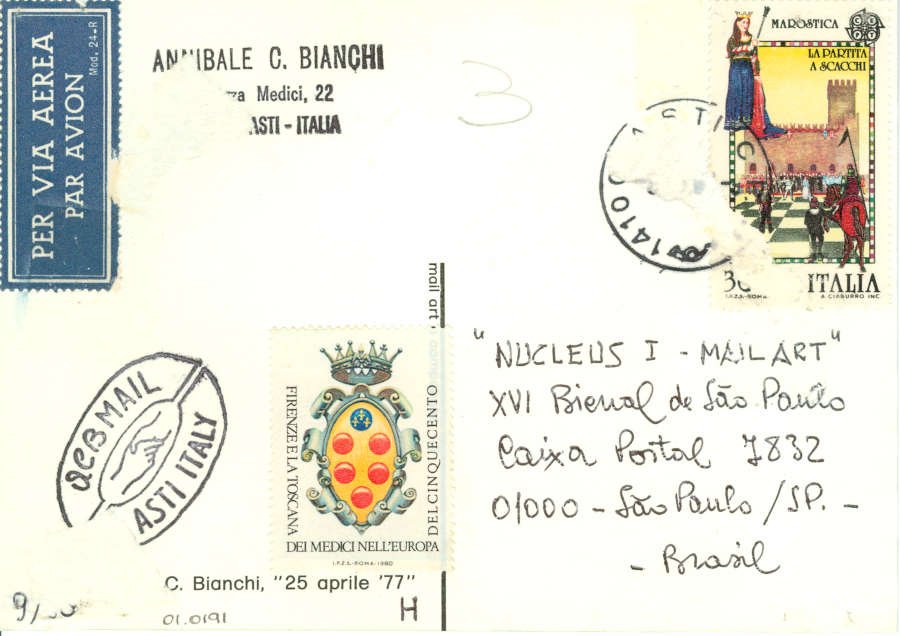 PER VIA AEREA
PAR AVION
Mod. 24-R
ANNIBALE C. BIANCHI
Medici, 22
ASTI - ITALIA
3
MAROSTICA
LA PARTITA
A SCACCHI
ITALIA
I.P.Z.S.-ROMA.
A. CIABURRO INC
mail art
ACB MAIL
ASTI ITALY
FIRENZE E LA TOSCANA
DEI MEDICI NELL'EUROPA
DEL CINQUECENTO
I.P.Z.S.-ROMA-1980
"NUCLEUS I - MAIL ART"
XVI Bienal de São Paulo
Caixa Postal 7832
01000 - São Paulo / SP. -
- Brasil
C. Bianchi, "25 aprile '77"
H
01.0191